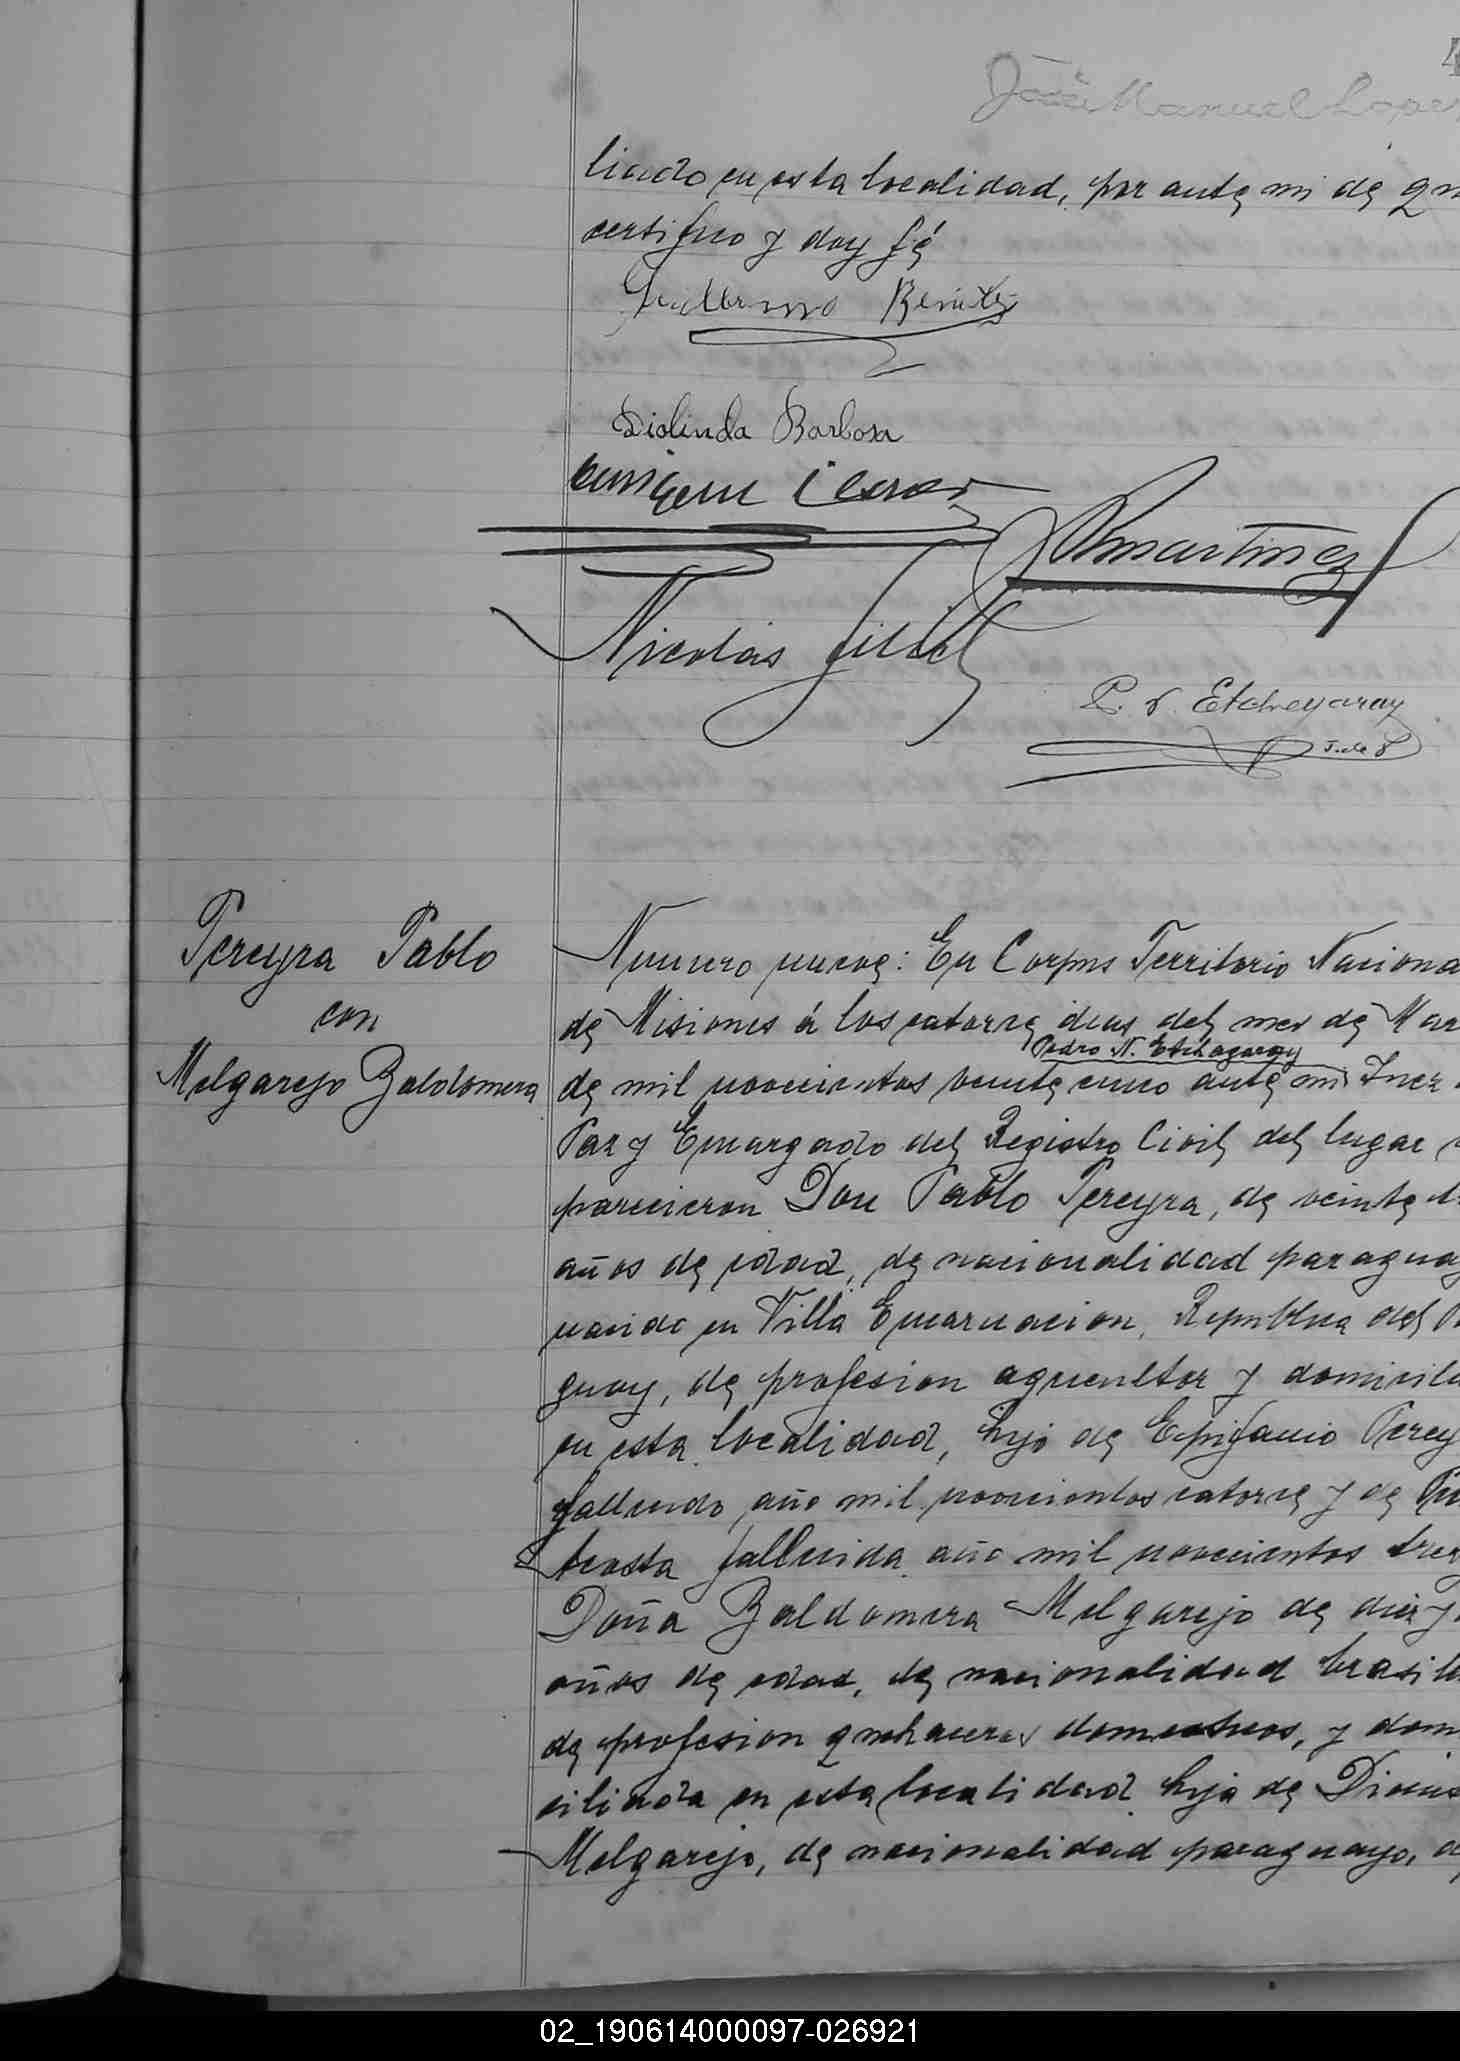 4
José Manuel Lopez
liado en esta localidad, por ante mi de qu
certifico y doy fé
Guillermo Benitez
Diolinda Barbosa
Martinez
Nicolás
P. N. Etchegaray
J. de P
Pereyra Pablo
con
Melgarejo Baldomera
Numero nueve: En Corpus Territorio Naciona
de Misiones á los catorce dias del mes de Mar
Pedro N. Etchegaray
de mil novecientos veinte cinco ante mi Juez
Paz y Encargado del Registro Civil del lugar
parecieron Don Pablo Pereyra, de veinte
años de edad, de nacionalidad paraguay
nacido en Villa Encarnacion, Republica del P
guay, de profesion agricultor y domicili
en esta localidad, hijo de Epifanio Perey
fallecido año mil novecientos catorce y de
Acosta fallecida año mil novecientos trec
Doña Baldomera Melgarejo de diez y
años de edad, de nacionalidad brasile
de profesion quehaceres domesticos, y dom
ciliada en esta localidad hija de Dionis
Melgarejo, de nacionalidad paraguayo, d
02_190614000097-026921